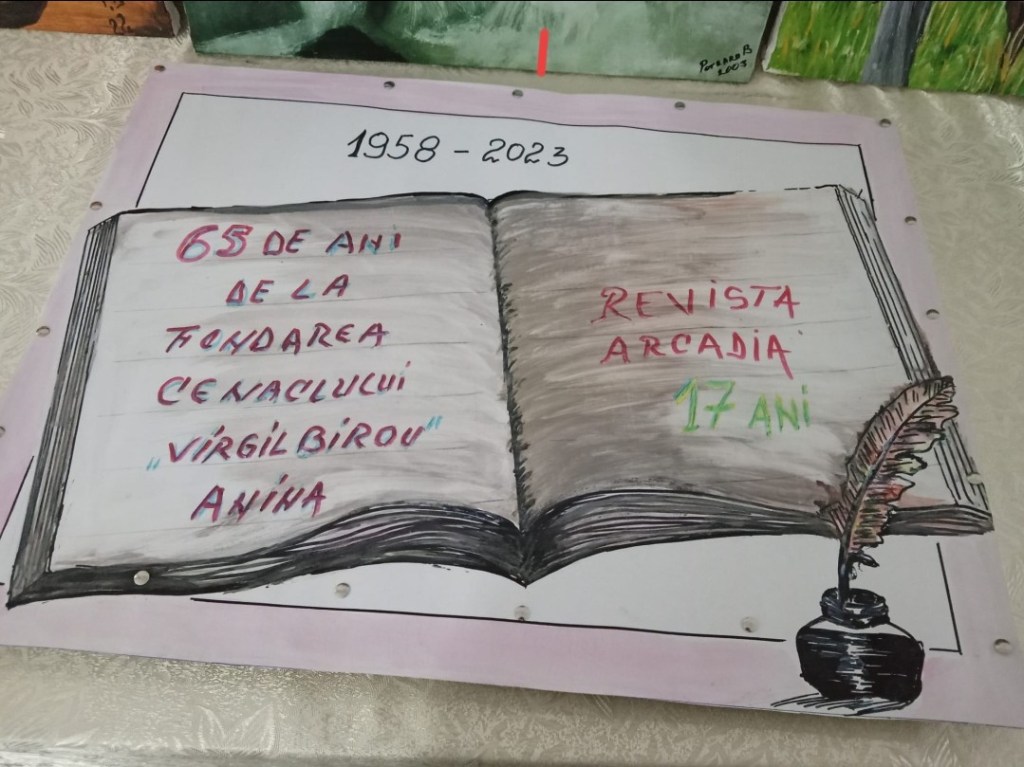 22
2003
1958 - 2023
65 DE ANI
DE LA
FONDAREA
CENACLULUI
„VIRGIL BIROU”
ANINA
REVISTA
ARCADIA
17 ANI